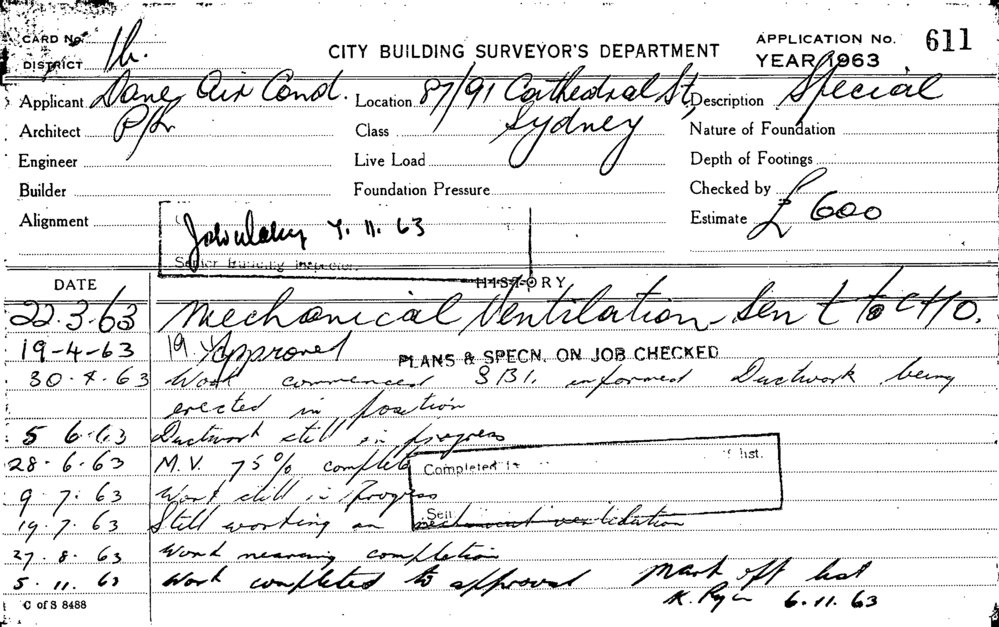 CARD No. APPLICATION No. 611
DISTRICT CITY BUILDING SURVEYOR'S DEPARTMENT YEAR 1963
Applicant Dane Air Cond. Location 87/91 Cathedral St, Description Special
Architect P/L Class Sydney Nature of Foundation
Engineer Live Load Depth of Footings
Builder Foundation Pressure Checked by
Alignment 7.11.63 Estimate £ 600
Senior Building Inspector
DATE HISTORY
22.3.63 Mechanical Ventilation - Sent to CHO.
19-4-63 Approved PLANS & SPECN. ON JOB CHECKED
30.4.63 Work commenced informed Ductwork being
erected in position
5 6.63 Ductwork still in progress
28.6.63 M.V. 75% complete Completed list.
9.7.63 Work still in Progress
19.7.63 Still working on mechanical ventilation
27.8.63 Work nearing completion
5.11.63 Work completed to approval Mark off list
C of S 8488 K. Ryan 6.11.63